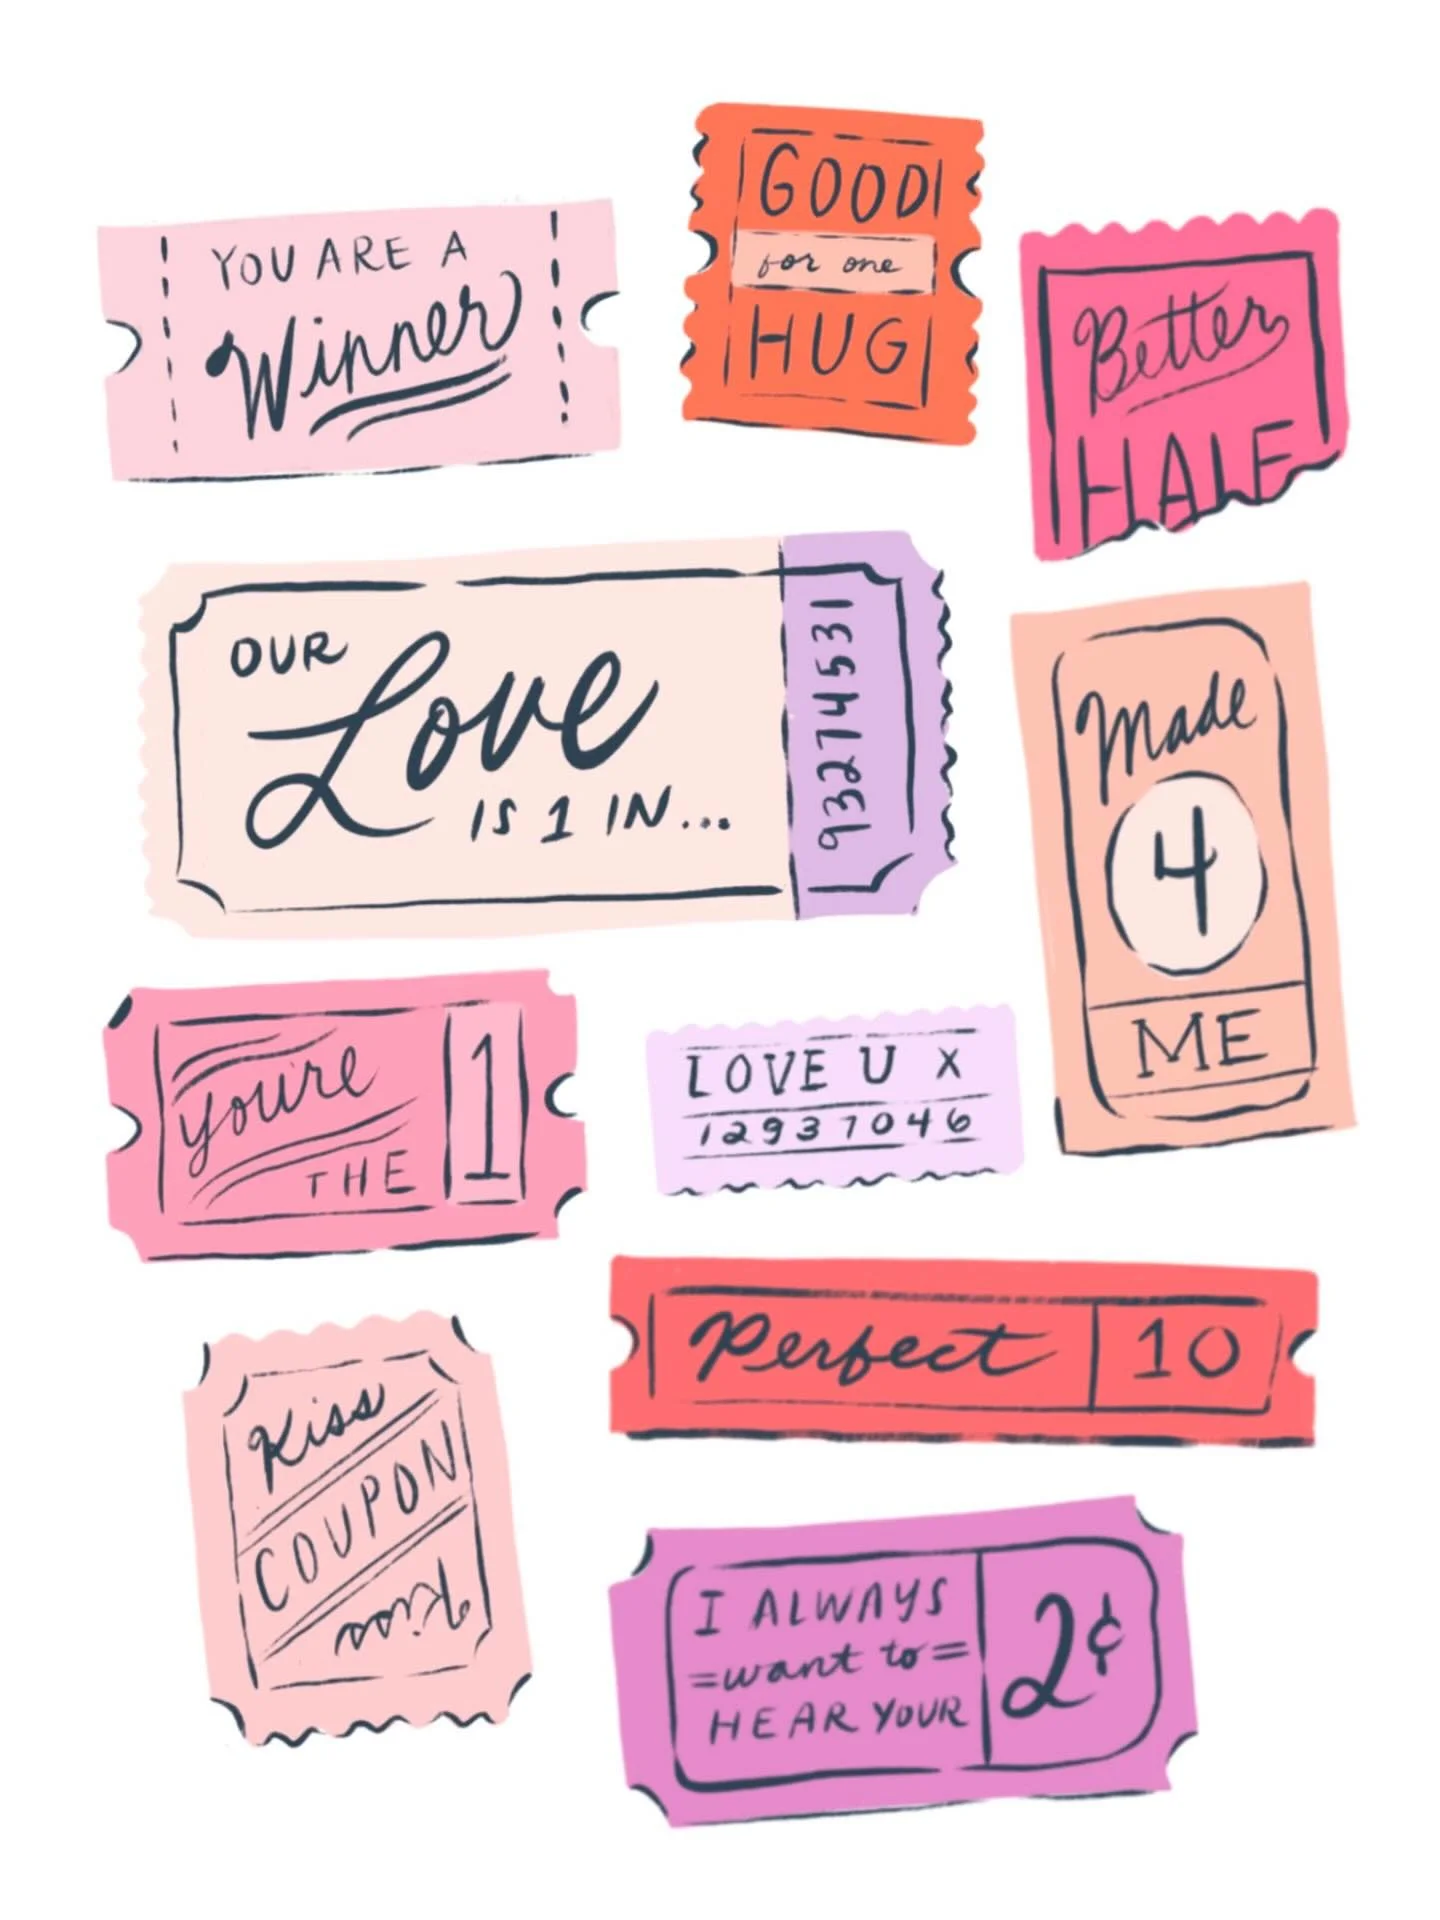 YOU ARE A
Winner
GOOD
for one
HUG
Better
HALF
OUR
Love
IS 1 IN...
93274531
Made
4
ME
you're
THE
1
LOVE U X
12937046
Perfect
10
Kiss
COUPON
Kiss
I ALWAYS
=want to=
HEAR YOUR
2¢